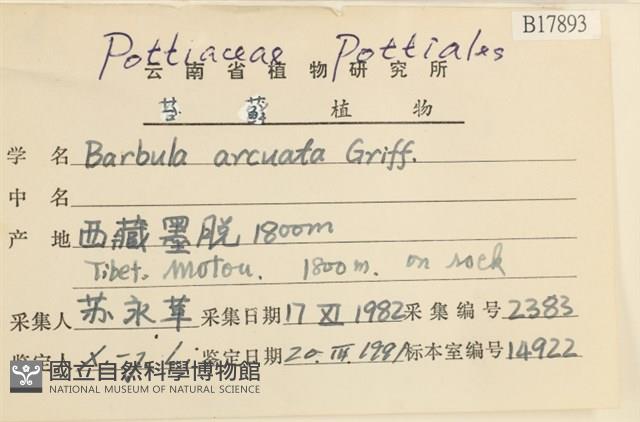 B17893
Pottiaceae Pottiales
云南省植物研究所
苔藓植物
学名 Barbula arcuata Griff.
中名
产地 西藏墨脱 1800m
Tibet. Motou. 1800m. on rock
采集人 苏永革 采集日期 17 XI 1982 采集编号 2383
鉴定人 鉴定日期 20. III. 1991 标本室编号 14922
國立自然科學博物館
NATIONAL MUSEUM OF NATURAL SCIENCE